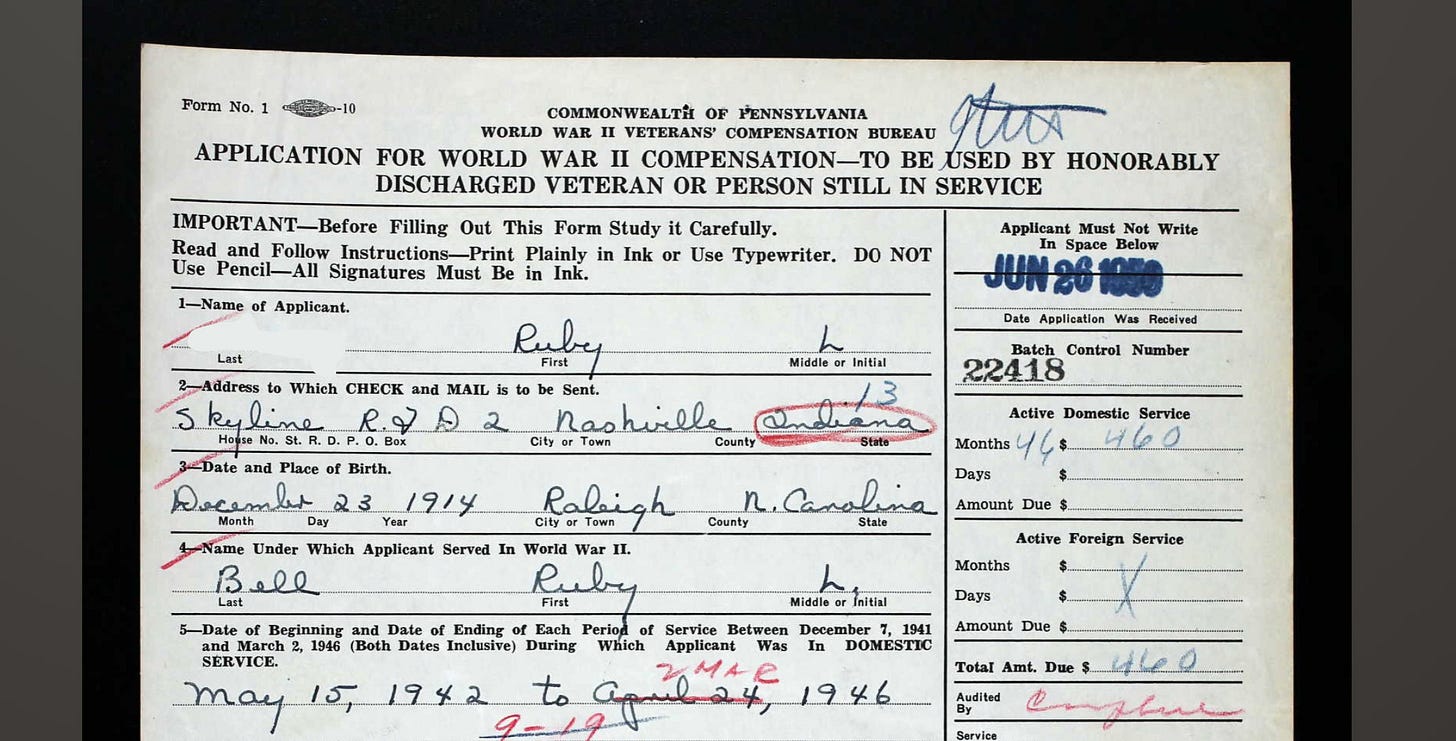 Form No. 1 -10
COMMONWEALTH OF PENNSYLVANIA
WORLD WAR II VETERANS' COMPENSATION BUREAU
APPLICATION FOR WORLD WAR II COMPENSATION—TO BE USED BY HONORABLY
DISCHARGED VETERAN OR PERSON STILL IN SERVICE
IMPORTANT—Before Filling Out This Form Study it Carefully.
Read and Follow Instructions—Print Plainly in Ink or Use Typewriter. DO NOT
Use Pencil—All Signatures Must Be in Ink.
1—Name of Applicant.
Ruby L
Last First Middle or Initial
2—Address to Which CHECK and MAIL is to be Sent.
13
Skyline R.F D 2 Nashville Indiana
House No. St. R. D. P. O. Box City or Town County State
3—Date and Place of Birth.
December 23 1914 Raleigh N. Carolina
Month Day Year City or Town County State
4—Name Under Which Applicant Served In World War II.
Bell Ruby L.
Last First Middle or Initial
5—Date of Beginning and Date of Ending of Each Period of Service Between December 7, 1941
and March 2, 1946 (Both Dates Inclusive) During Which Applicant Was In DOMESTIC
SERVICE.
2 MAR
May 15, 1942 to April 24, 1946
9-19
Applicant Must Not Write
In Space Below
JUN 26 1950
Date Application Was Received
Batch Control Number
22418
Active Domestic Service
Months 46 $ 460
Days $
Amount Due $
Active Foreign Service
Months $
Days $
Amount Due $
Total Amt. Due $ 460
Audited
By
Service